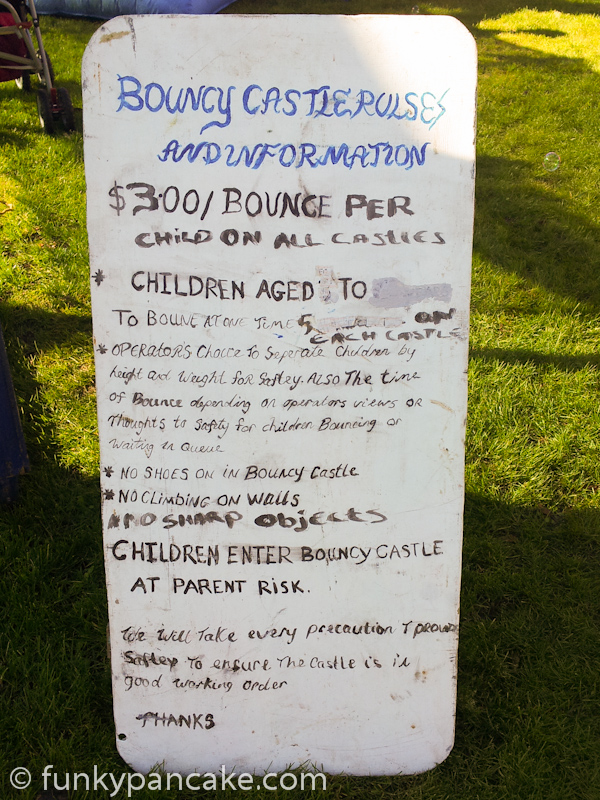 BOUNCY CASTLE RULSES
AND INFORMATION
$3.00/ BOUNCE PER
CHILD ON ALL CASTLES
* CHILDREN AGED TO
TO BOUNE AT ONE TIME 5 ON
EACH CASTLE
* OPERATOR'S Choice To Seperate Children by
height and Weight for Saftey. Also The time
of Bounce depending on operators views or
Thoughts to Safety for children Bouncing or
Waiting in Queue
* NO SHOES ON IN BOUNCY CASTLE
* NO CLIMBING ON WALLS
AND SHARP OBJECTS
CHILDREN ENTER BOUNCY CASTLE
AT PARENT RISK.
We will take every precaution T
Saftey To ensure The Castle is in
good working order
THANKS
© funkypancake.com